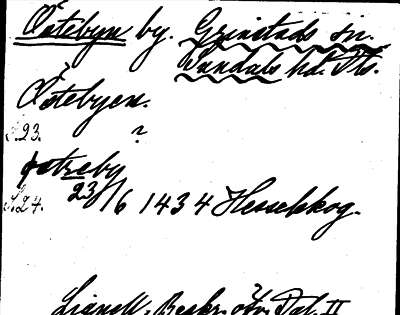 Östebyn by. Grinstads sn.
Sundals hd. Äs.
Östebyen.
S. 23. ?
østreby
S. 24. 23/6 1434 Hesselskog.
Lignell, Beskr. öfv. Dal. II